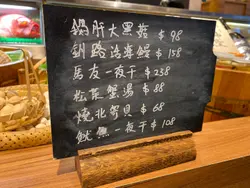 鵝肝大黑菇 $98
釧路 鰻 $158
馬友一夜干 $238
松葉蟹湯 $88
燒北寄貝 $68
魷魚一夜干 $108